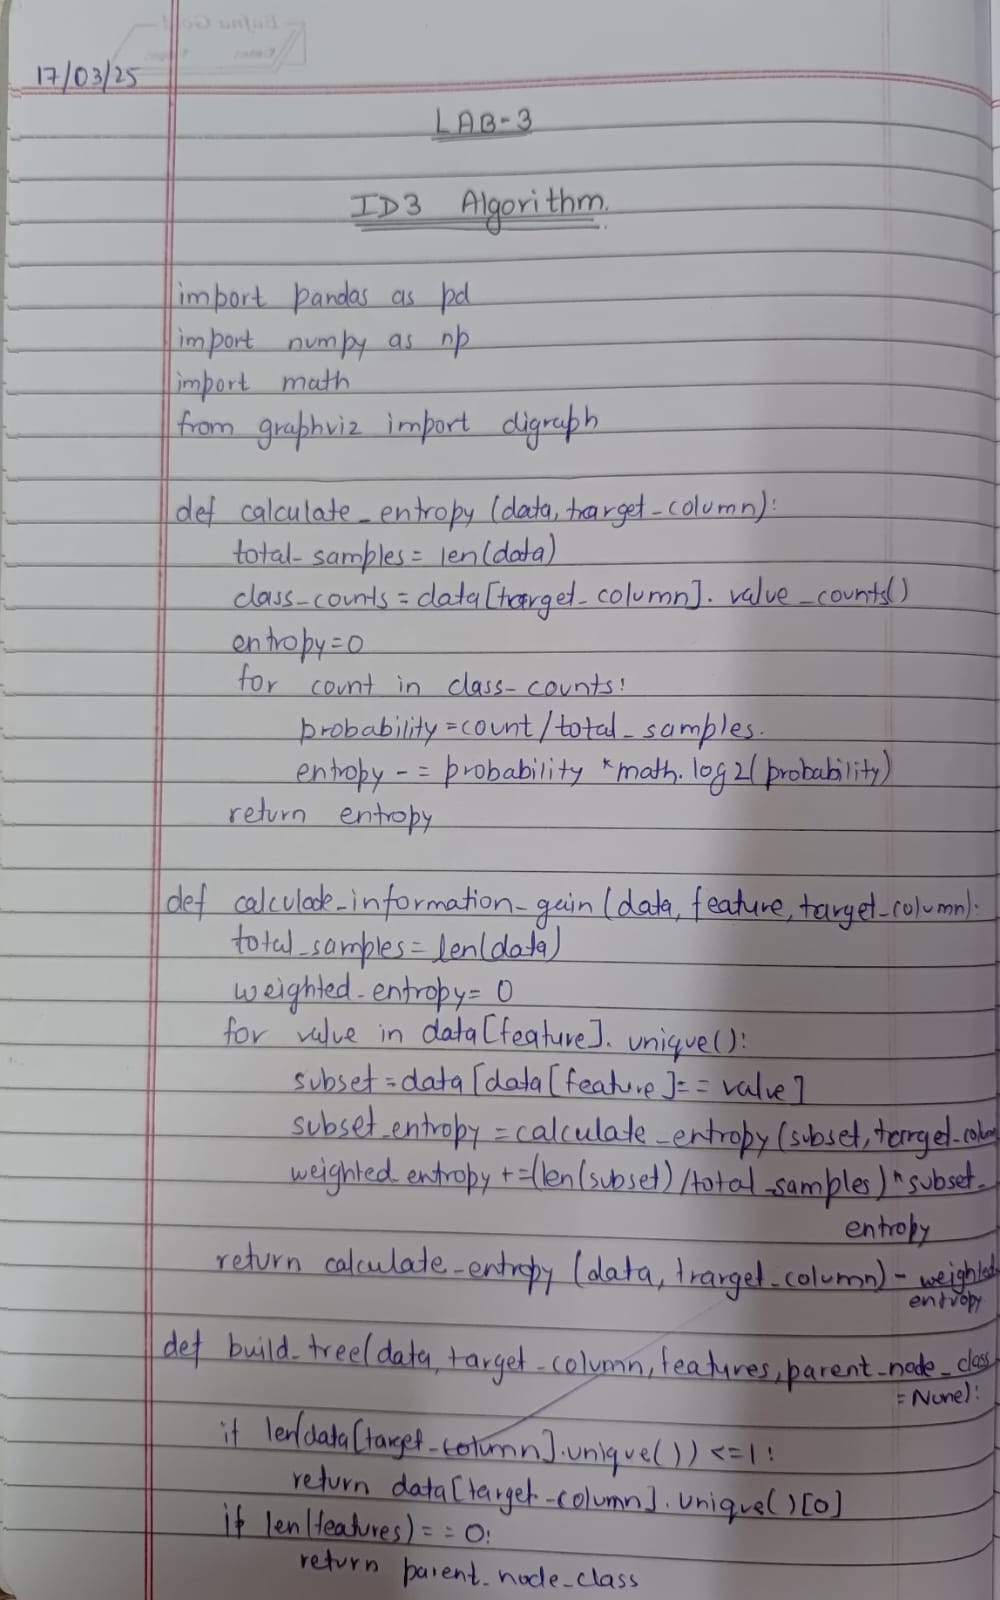 17/03/25
LAB-3
ID3 Algorithm.
import pandas as pd
import numpy as np
import math
from graphviz import digraph
def calculate_entropy (data, target_column):
total_samples = len(data)
class_counts = data[target_column]. value_counts()
entropy=0
for count in class_counts:
probability = count/total_samples.
entropy -= probability *math.log2(probability)
return entropy
def calculate_information_gain (data, feature, target_column):
total_samples = len(data)
weighted_entropy= 0
for value in data[feature]. unique():
subset = data[data[feature]== value]
subset_entropy = calculate_entropy (subset, target_colum
weighted entropy +=(len(subset) /total_samples)*subset_
entropy
return calculate_entropy (data, target_column) - weighted
entropy
def build_tree(data, target_column, features, parent_node_class
= None):
if len(data[target_column].unique()) <=1:
return data[target_column]. unique()[0]
if len(features) == 0:
return parent_node_class